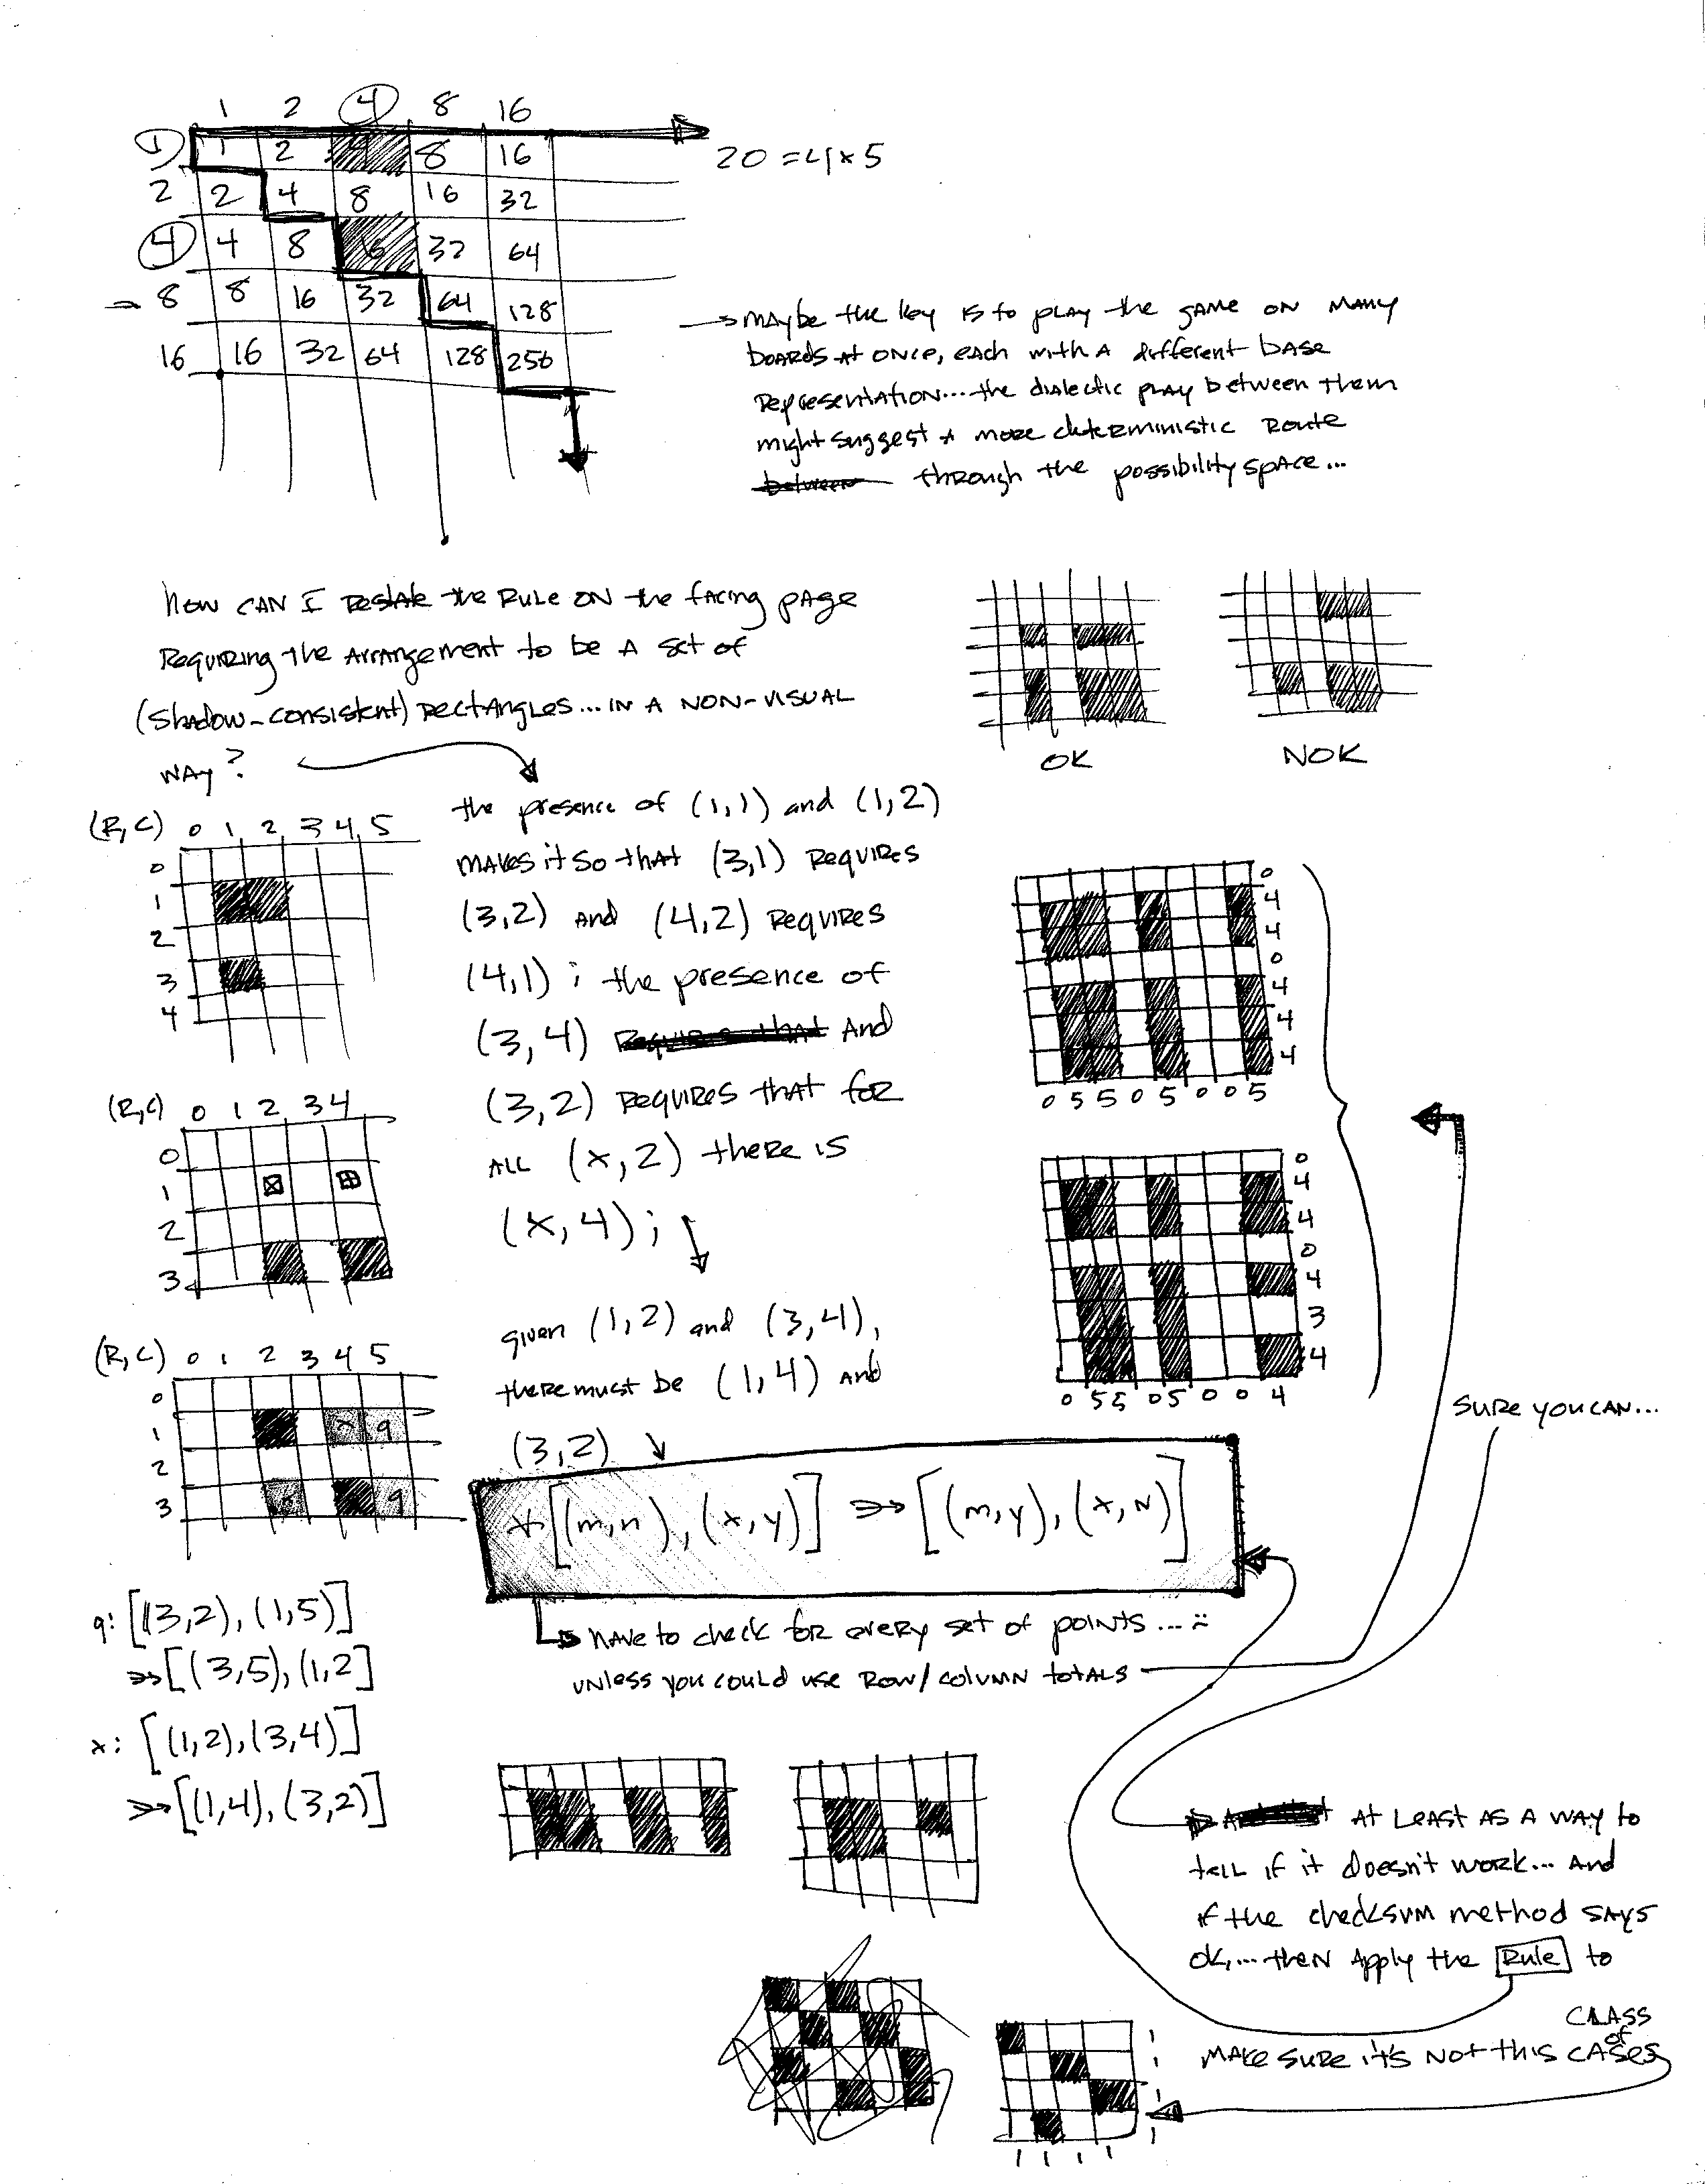 1 2 4 8 16
1 1 2 8 16
2 2 4 8 16 32
4 4 8 16 32 64
8 8 16 32 64 128
16 16 32 64 128 256
20 = 4 x 5
→ maybe the key is to play the game on many
boards at once, each with a different base
representation... the dialectic play between them
might suggest a more deterministic route
between through the possibility space...
How can I restate the rule on the facing page
requiring the arrangement to be a set of
(shadow-consistent) rectangles... in a non-visual
way?
OK
NOK
(R,C) 0 1 2 3 4 5
0
1
2
3
4
the presence of (1,1) and (1,2)
makes it so that (3,1) requires
(3,2) and (4,2) requires
(4,1); the presence of
(3,4) requires that and
(3,2) requires that for
all (x,2) there is
(x,4);
(R,C) 0 1 2 3 4
0
1
2
3
given (1,2) and (3,4),
there must be (1,4) and
(3,2)
(R,C) 0 1 2 3 4 5
0
1 x q
2
3 x q
* [(m,n), (x,y)] ⇒ [(m,y), (x,n)]
→ have to check for every set of points...
unless you could use row/column totals
q: [(3,2), (1,5)]
⇒ [(3,5), (1,2]
x: [(1,2), (3,4)]
⇒ [(1,4), (3,2)]
0
4
4
0
4
4
4
0 5 5 0 5 0 0 5
0
4
4
0
4
3
4
0 5 5 0 5 0 0 4
sure you can...
at least as a way to
tell if it doesn't work... and
if the checksum method says
ok,... then apply the Rule to
make sure it's not this class of cases
1
1
1
1
1 1 1 1